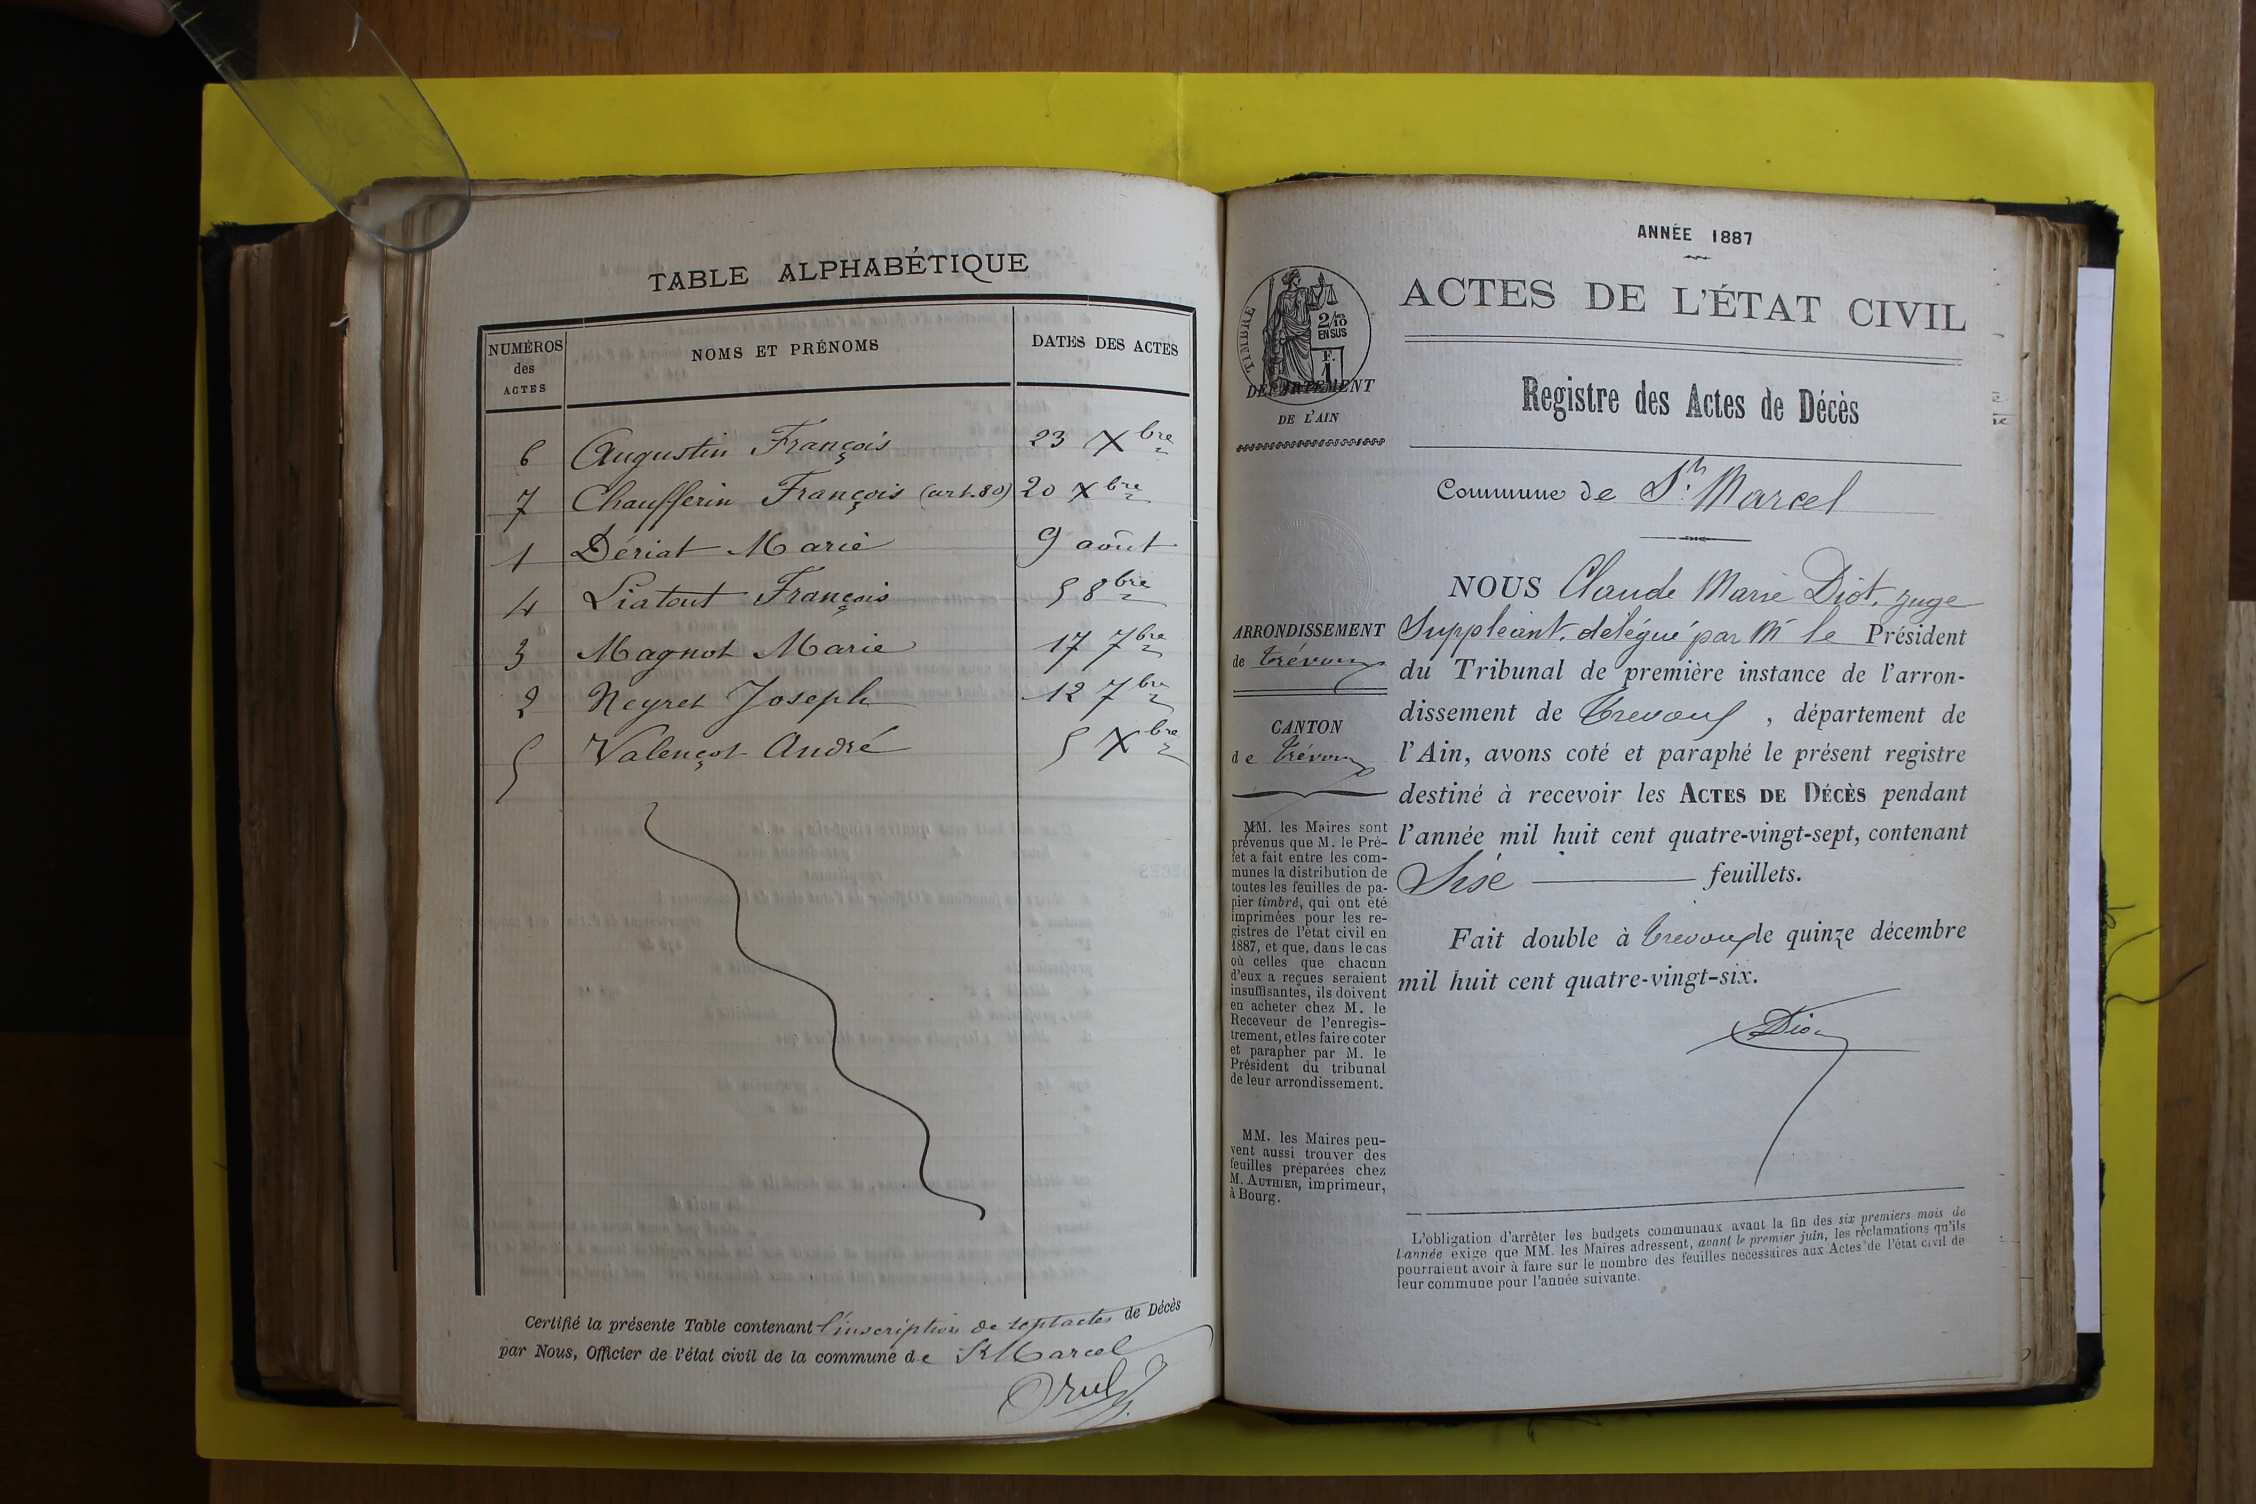 TABLE ALPHABÉTIQUE
NUMÉROS des ACTES
NOMS ET PRÉNOMS
DATES DES ACTES
6 Augustin François 23 Xbre
7 Chaufferin François (art. 80) 20 Xbre
1 Dériat Marie 9 août
4 Liatout François 5 8bre
3 Magnot Marie 17 7bre
2 Neyret Joseph 12 7bre
5 Valençot André 5 Xbre
Certifié la présente Table contenant l'inscription de sept actes de Décès
par Nous, Officier de l'état civil de la commune de St Marcel
ANNÉE 1887
ACTES DE L'ÉTAT CIVIL
TIMBRE
2/10
EN SUS
F.
1
DÉPARTEMENT
DE L'AIN
Registre des Actes de Décès
Commune de St. Marcel
ARRONDISSEMENT
de Trévoux
CANTON
de Trévoux
MM. les Maires sont
prévenus que M. le Pré-
fet a fait entre les com-
munes la distribution de
toutes les feuilles de pa-
pier timbré, qui ont été
imprimées pour les re-
gistres de l'état civil en
1887, et que, dans le cas
où celles que chacun
d'eux a reçues seraient
insuffisantes, ils doivent
en acheter chez M. le
Receveur de l'enregis-
trement, et les faire coter
et parapher par M. le
Président du tribunal
de leur arrondissement.
MM. les Maires peu-
vent aussi trouver des
feuilles préparées chez
M. AUTHIER, imprimeur,
à Bourg.
NOUS Claude Marie Diot, juge
Suppléant, délégué par Mr le Président
du Tribunal de première instance de l'arron-
dissement de Trevoux, département de
l'Ain, avons coté et paraphé le présent registre
destiné à recevoir les ACTES DE DÉCÈS pendant
l'année mil huit cent quatre-vingt-sept, contenant
Sise feuillets.
Fait double à Trevoux le quinze décembre
mil huit cent quatre-vingt-six.
Diot
L'obligation d'arrêter les budgets communaux avant la fin des six premiers mois de
l'année exige que MM. les Maires adressent, avant le premier juin, les réclamations qu'ils
pourraient avoir à faire sur le nombre des feuilles nécessaires aux Actes de l'état civil de
leur commune pour l'année suivante.